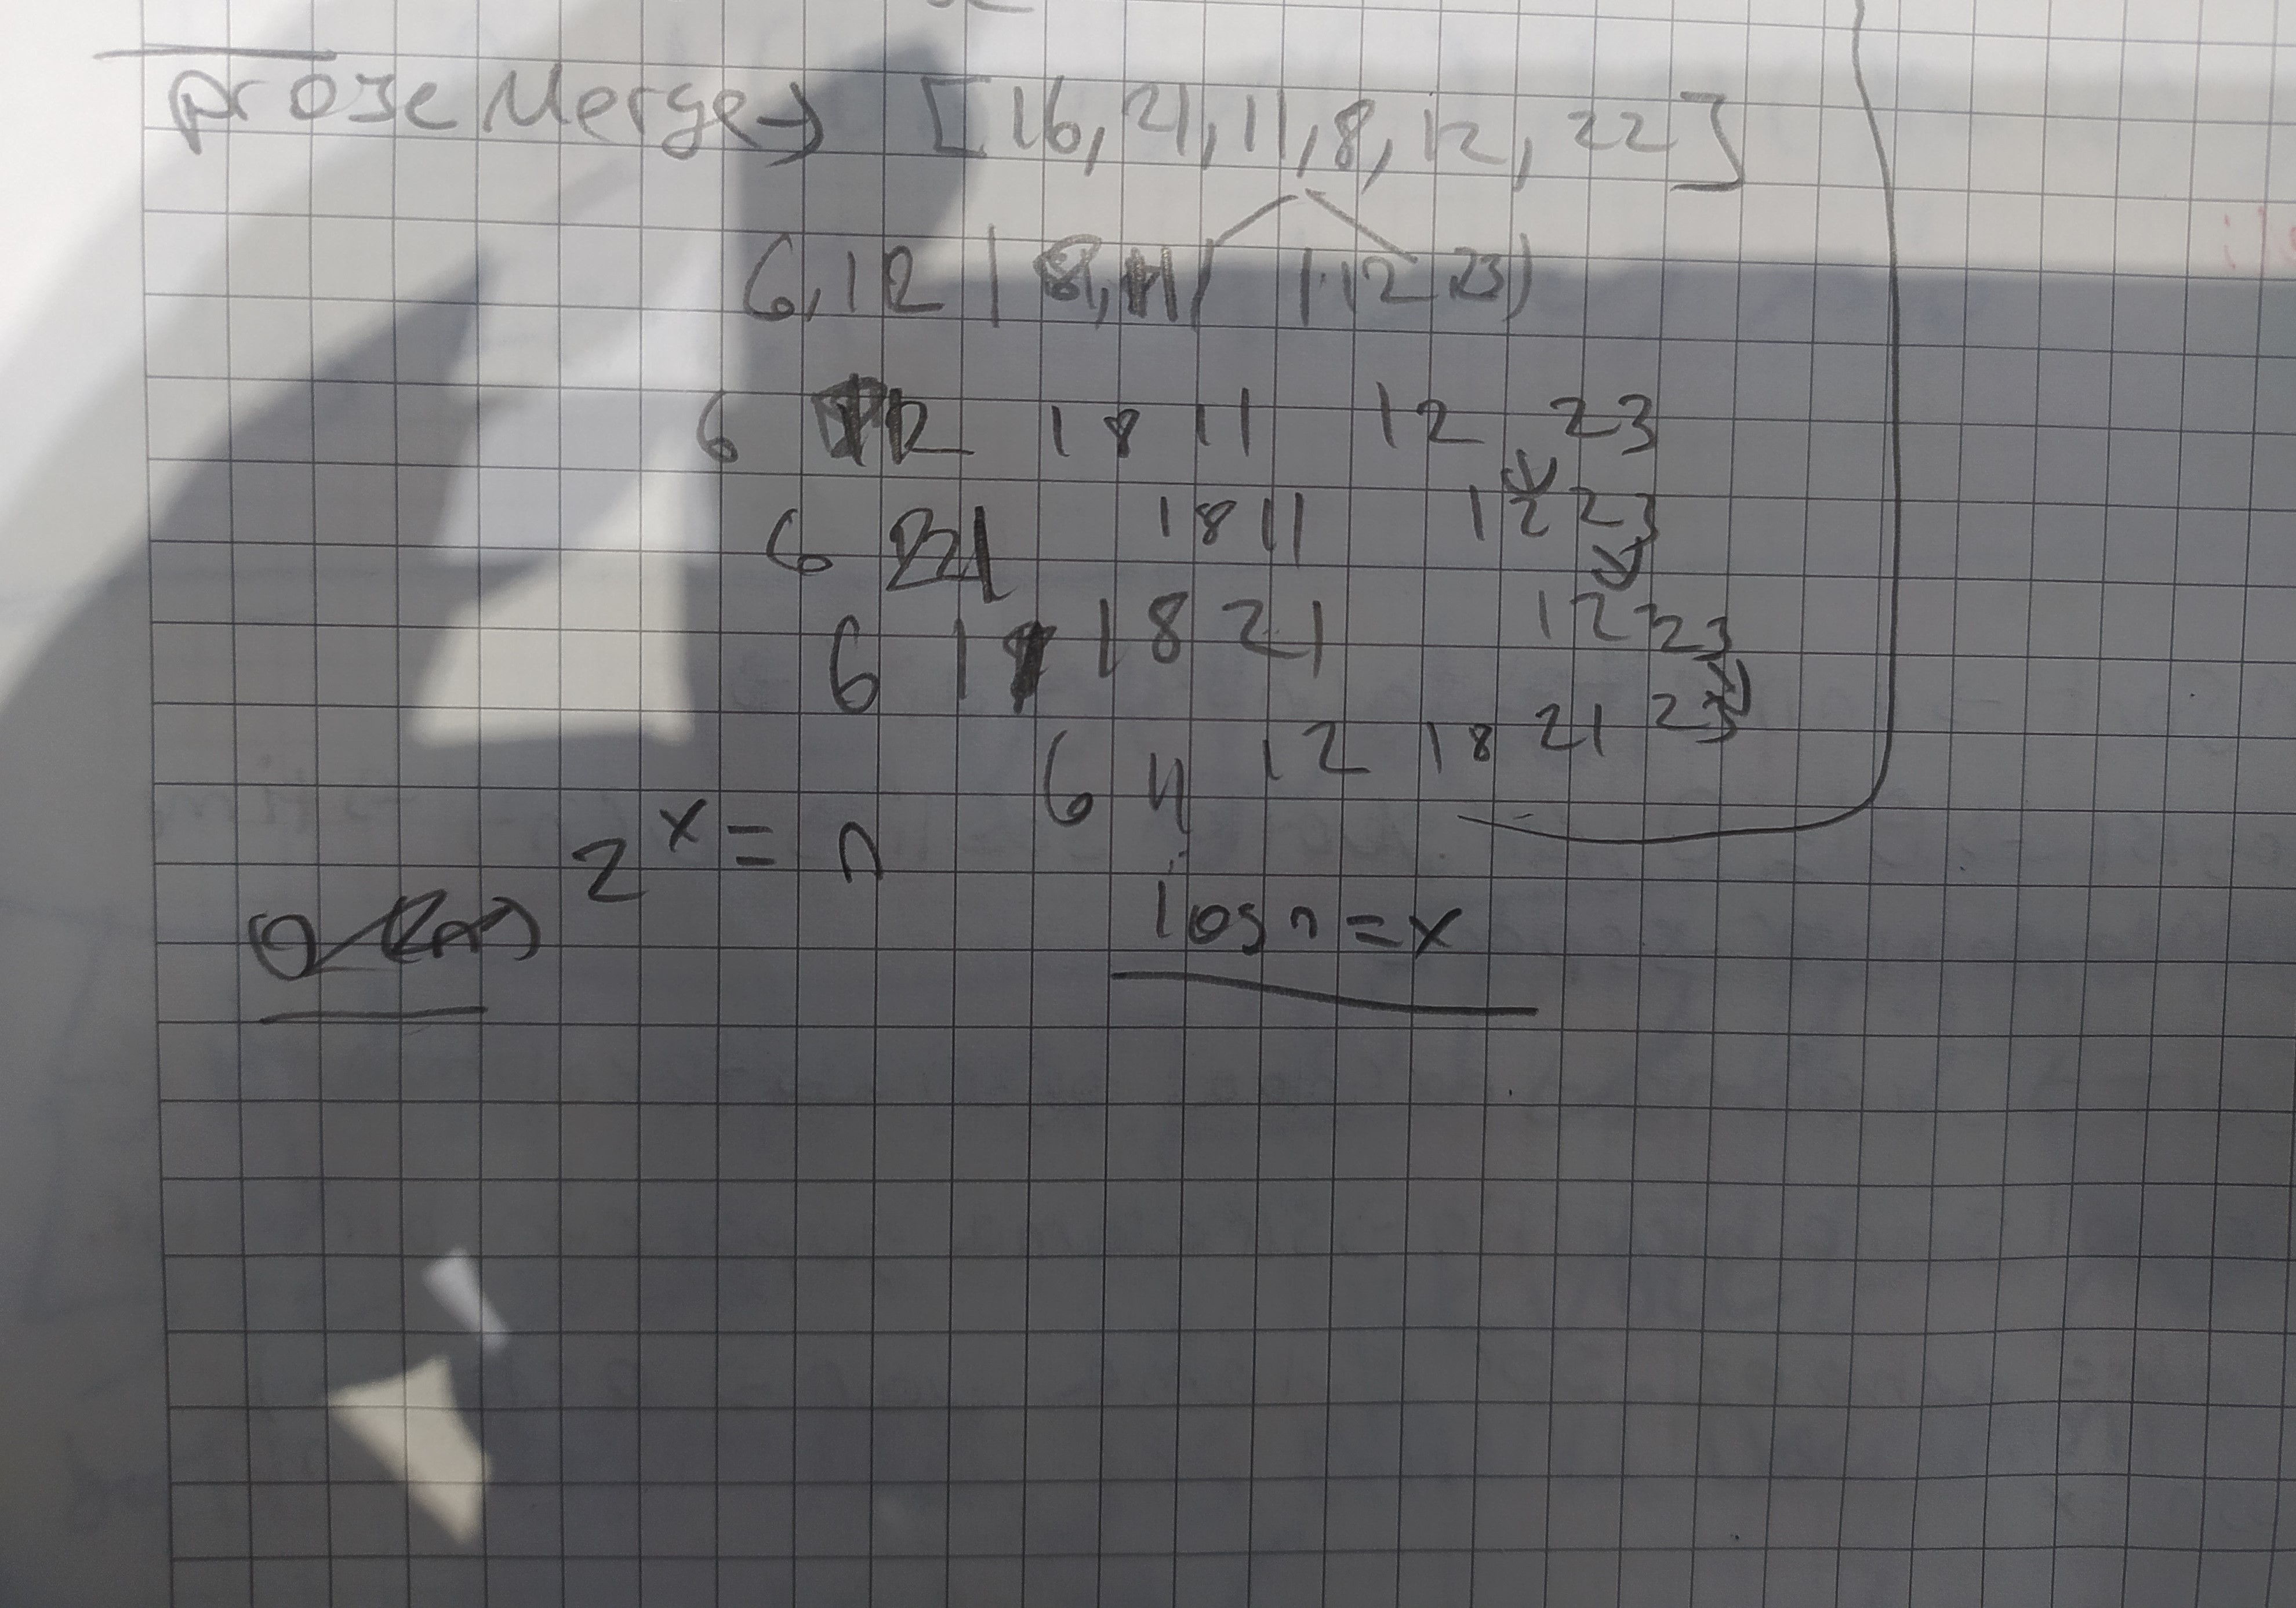 proje Merge → [16, 21, 11, 8, 12, 22]
6, 12 | 8, 11 / | 12 23)
6 12 18 11 12 23
6 21 18 11 12 23
6 11 18 21 12 23
6 11 12 18 21 23
2^x = n
log n = x